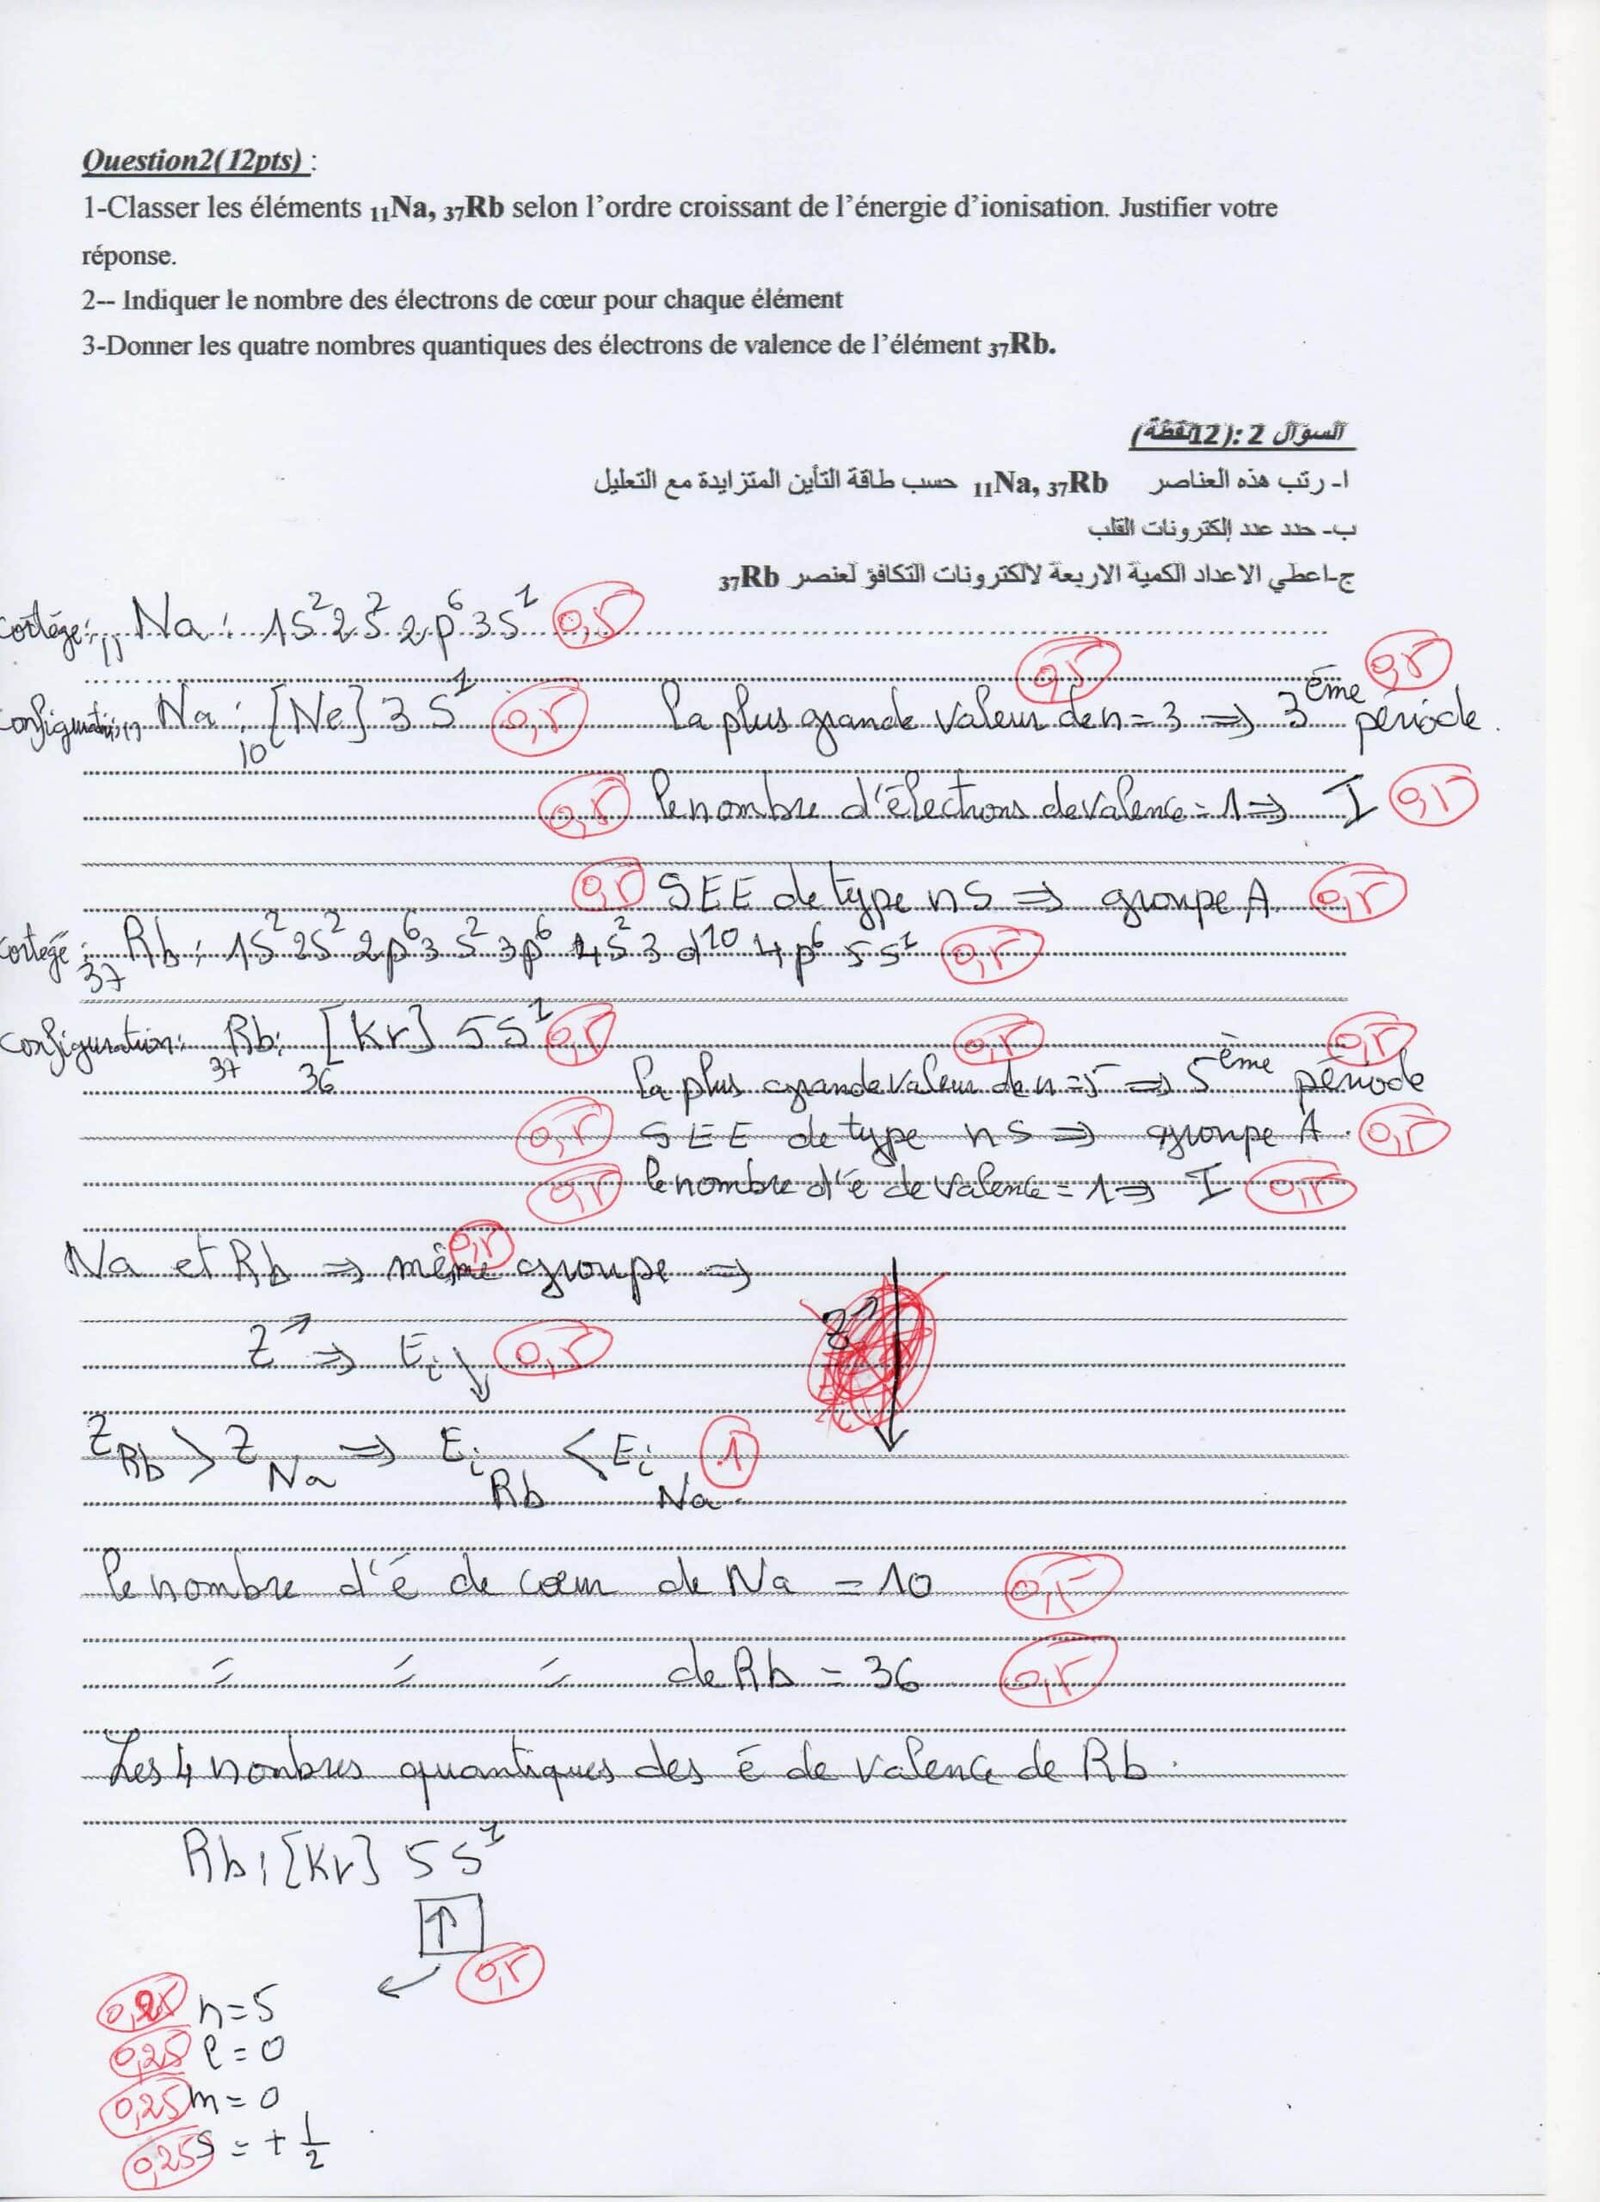 Question2(12pts) :
1-Classer les éléments ₁₁Na, ₃₇Rb selon l’ordre croissant de l’énergie d’ionisation. Justifier votre
réponse.
2-- Indiquer le nombre des électrons de cœur pour chaque élément
3-Donner les quatre nombres quantiques des électrons de valence de l’élément ₃₇Rb.
السؤال 2 :(12نقطة)
ا- رتب هذه العناصر ₁₁Na, ₃₇Rb حسب طاقة التأين المتزايدة مع التعليل
ب- حدد عدد إلكترونات القلب
ج-اعطي الاعداد الكمية الاربعة لالكترونات التكافؤ لعنصر ₃₇Rb
cortége: ₁₁Na : 1s² 2s² 2p⁶ 3s¹ 0,5
0,5 0,5
Configuration: ₁₁Na : ₁₀[Ne] 3s¹ 0,5 la plus grande valeur de n = 3 ⇒ 3ème période.
0,5 le nombre d'électrons de valence = 1 ⇒ I 0,5
0,5 SEE de type ns ⇒ groupe A. 0,5
cortégé : ₃₇Rb : 1s² 2s² 2p⁶ 3s² 3p⁶ 4s² 3d¹⁰ 4p⁶ 5s¹ 0,5
Configuration: ₃₇Rb: ₃₆[Kr] 5s¹ 0,5 0,5 0,5
la plus grande valeur de n = 5 ⇒ 5ème période
0,5 SEE de type ns ⇒ groupe A. 0,5
0,5 le nombre d'é de valence = 1 ⇒ I 0,5
Na et Rb ⇒ même groupe ⇒ 0,5
Z↗ ⇒ Ei ↓ 0,5
Z Rb > Z Na ⇒ Ei Rb < Ei Na. 1
le nombre d'é de cœur de Na = 10 0,5
= = = de Rb = 36 0,5
Les 4 nonbres quantiques des é de valence de Rb.
Rb : [Kr] 5s¹
↑
0,5
0,25 n = 5
0,25 l = 0
0,25 m = 0
0,25 s = + 1/2